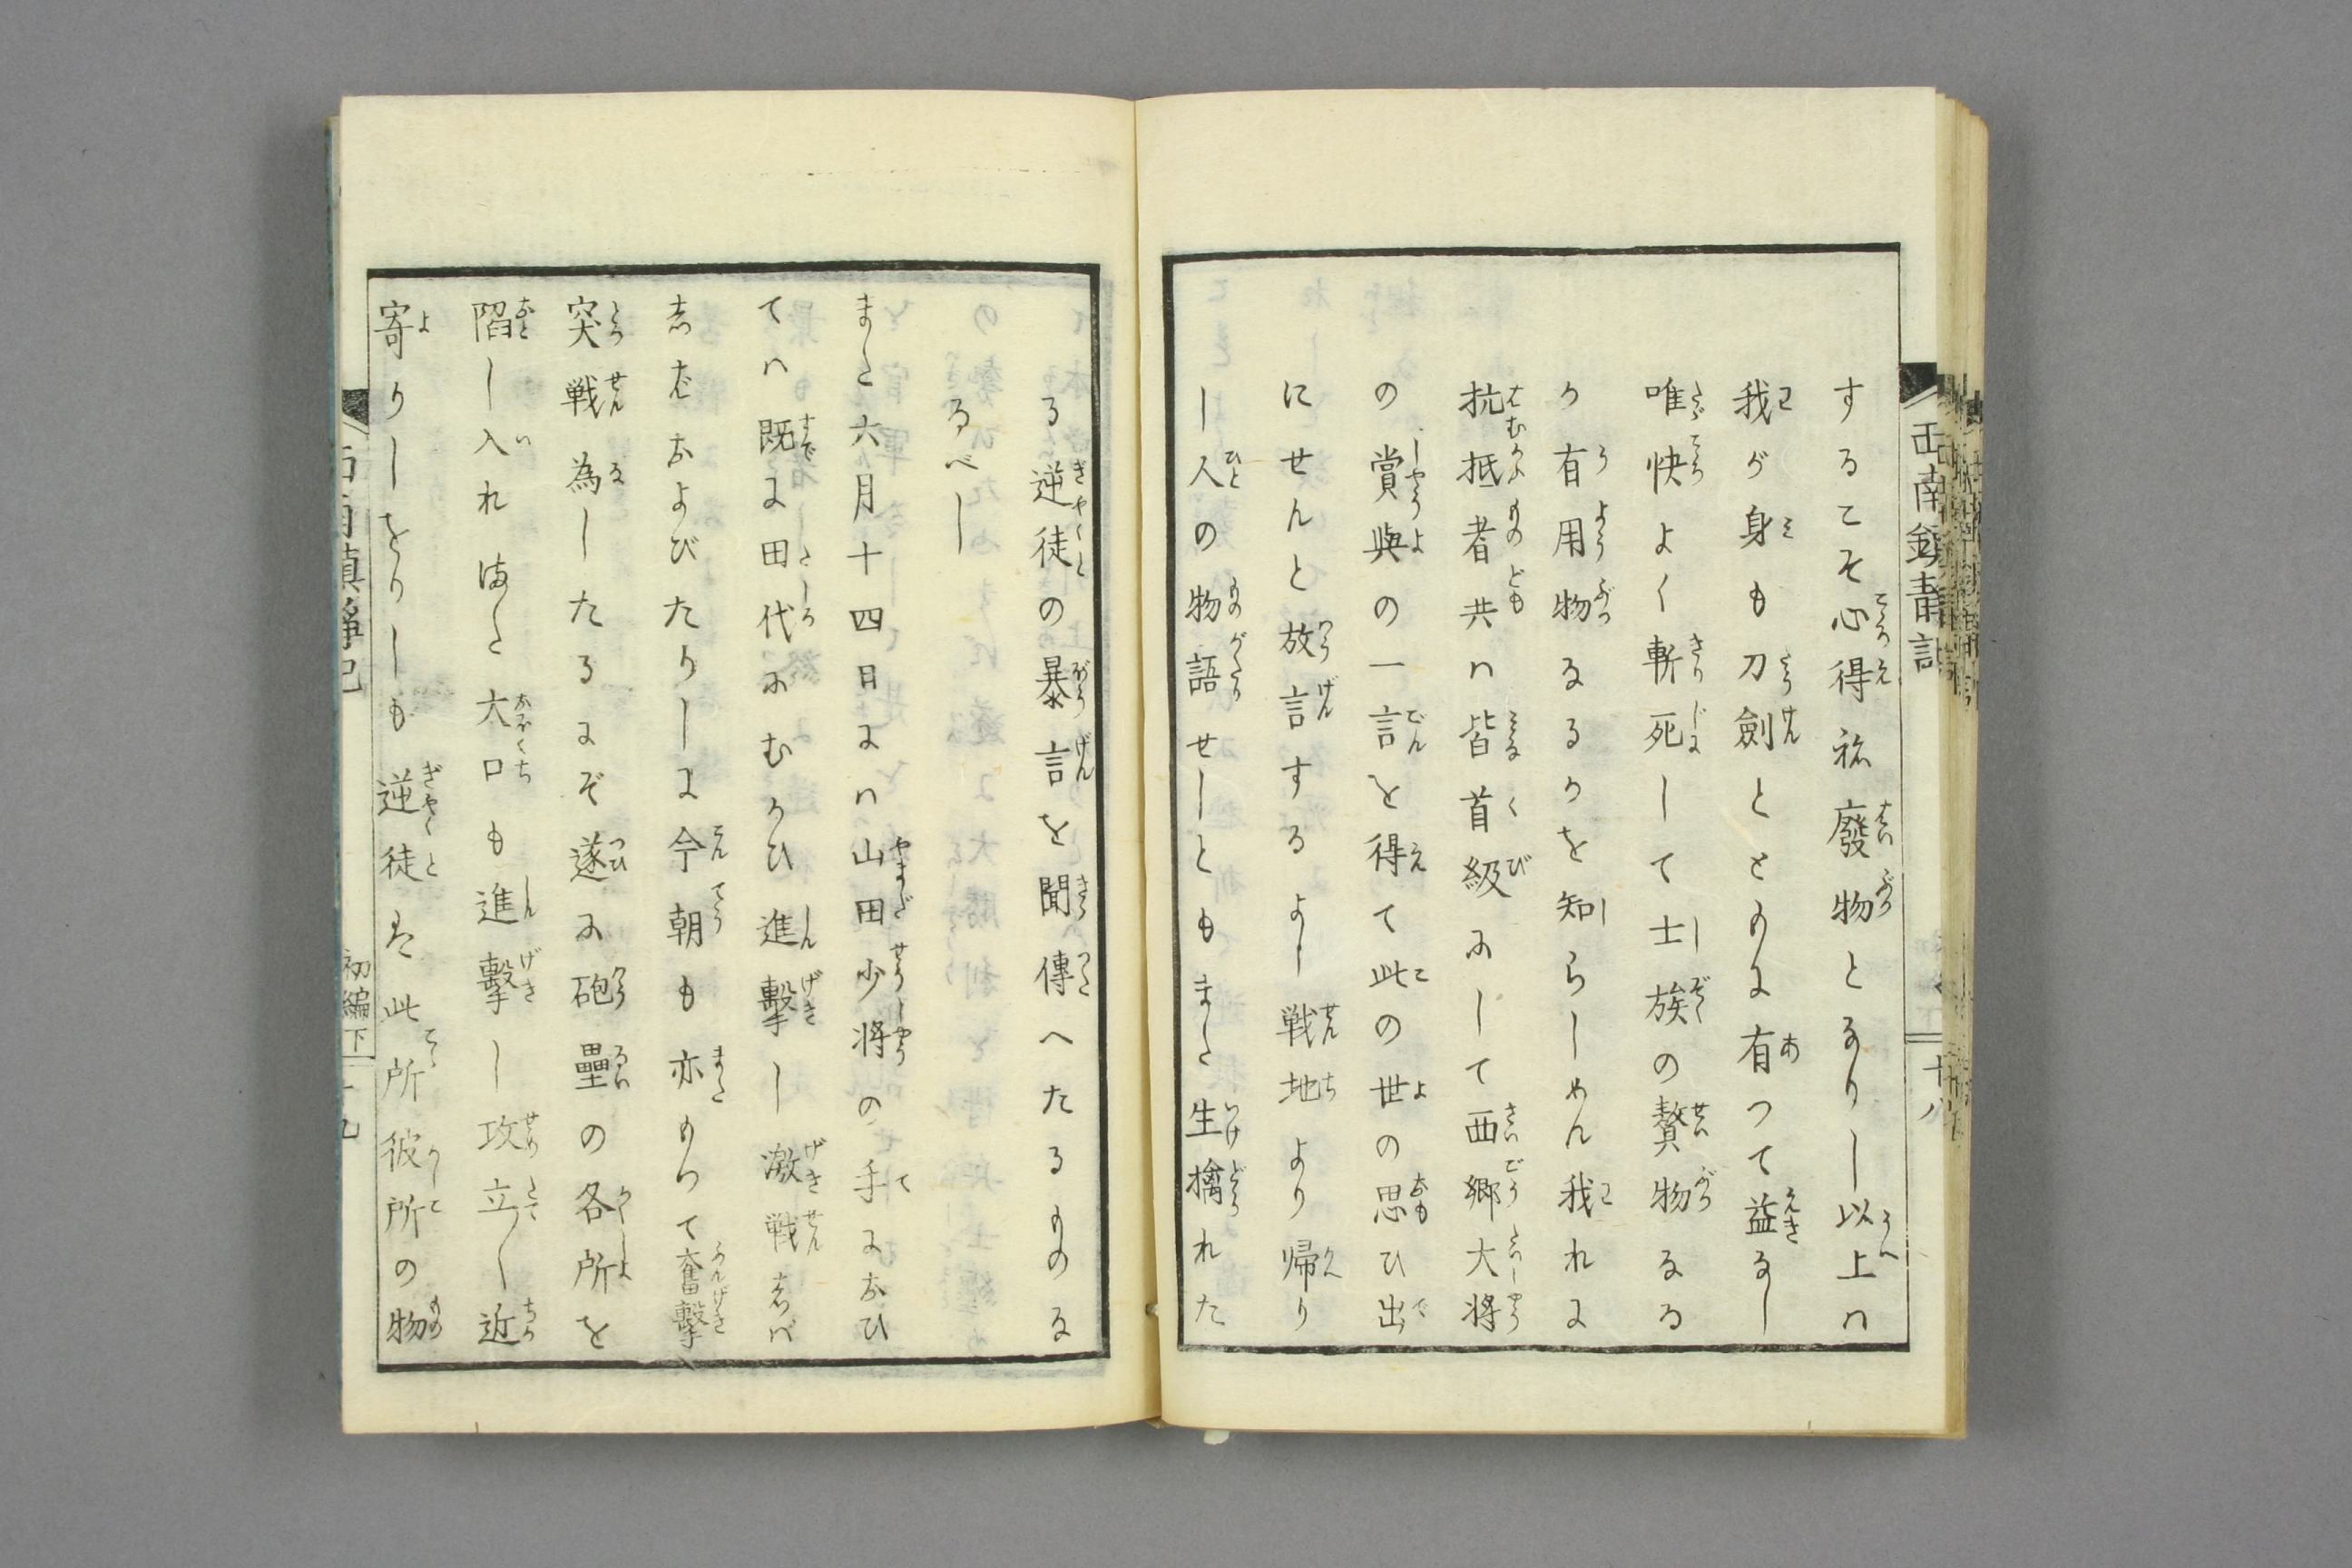 するこそ心得ね廢物となりし以上ハ
我が身も刀劍とともに有つて益なし
唯快よく斬死して士族の贅物なる
か有用物なるかを知らしめん我れに
抗抵者共ハ皆首級にして西郷大将
の賞與の一言を得て此の世の思ひ出
にせんと放言するよし戦地より帰り
し人の物語せしともまた生擒れた
西南鎮靜記
十八
る逆徒の暴言を聞傳へたるものな
るべし
また六月十四日にハ山田少将の手におひ
てハ既に田代にむかひ進擊し激戦あバ
しだおよびたりしに今朝も亦もつて奮擊
突戦為したるにぞ遂に砲壘の各所を
陷し入れまた大口も進擊し攻立〳〵近
寄りしをりしも逆徒は此所彼所の物
西南鎮靜記
初編下
十九